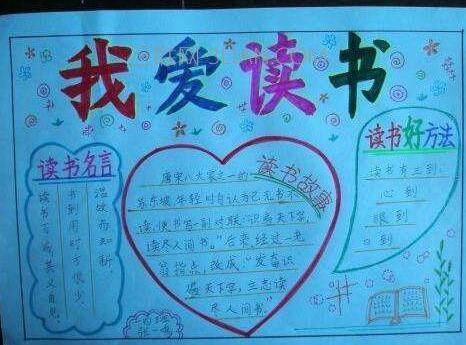 我爱读书
读书名言
温故而知新。
书到用时方恨少。
读书百遍,其义自见。
读书故事
唐宋八大家之一的
苏东坡年轻时自认为已无书不
读,便书写一副对联:“识遍天下字,
读尽人间书。”后来经过一老
翁指点,改成:“发奋识
遍天下字,立志读
尽人间书。”
读书好方法
读书有三到:
心到
眼到
口到